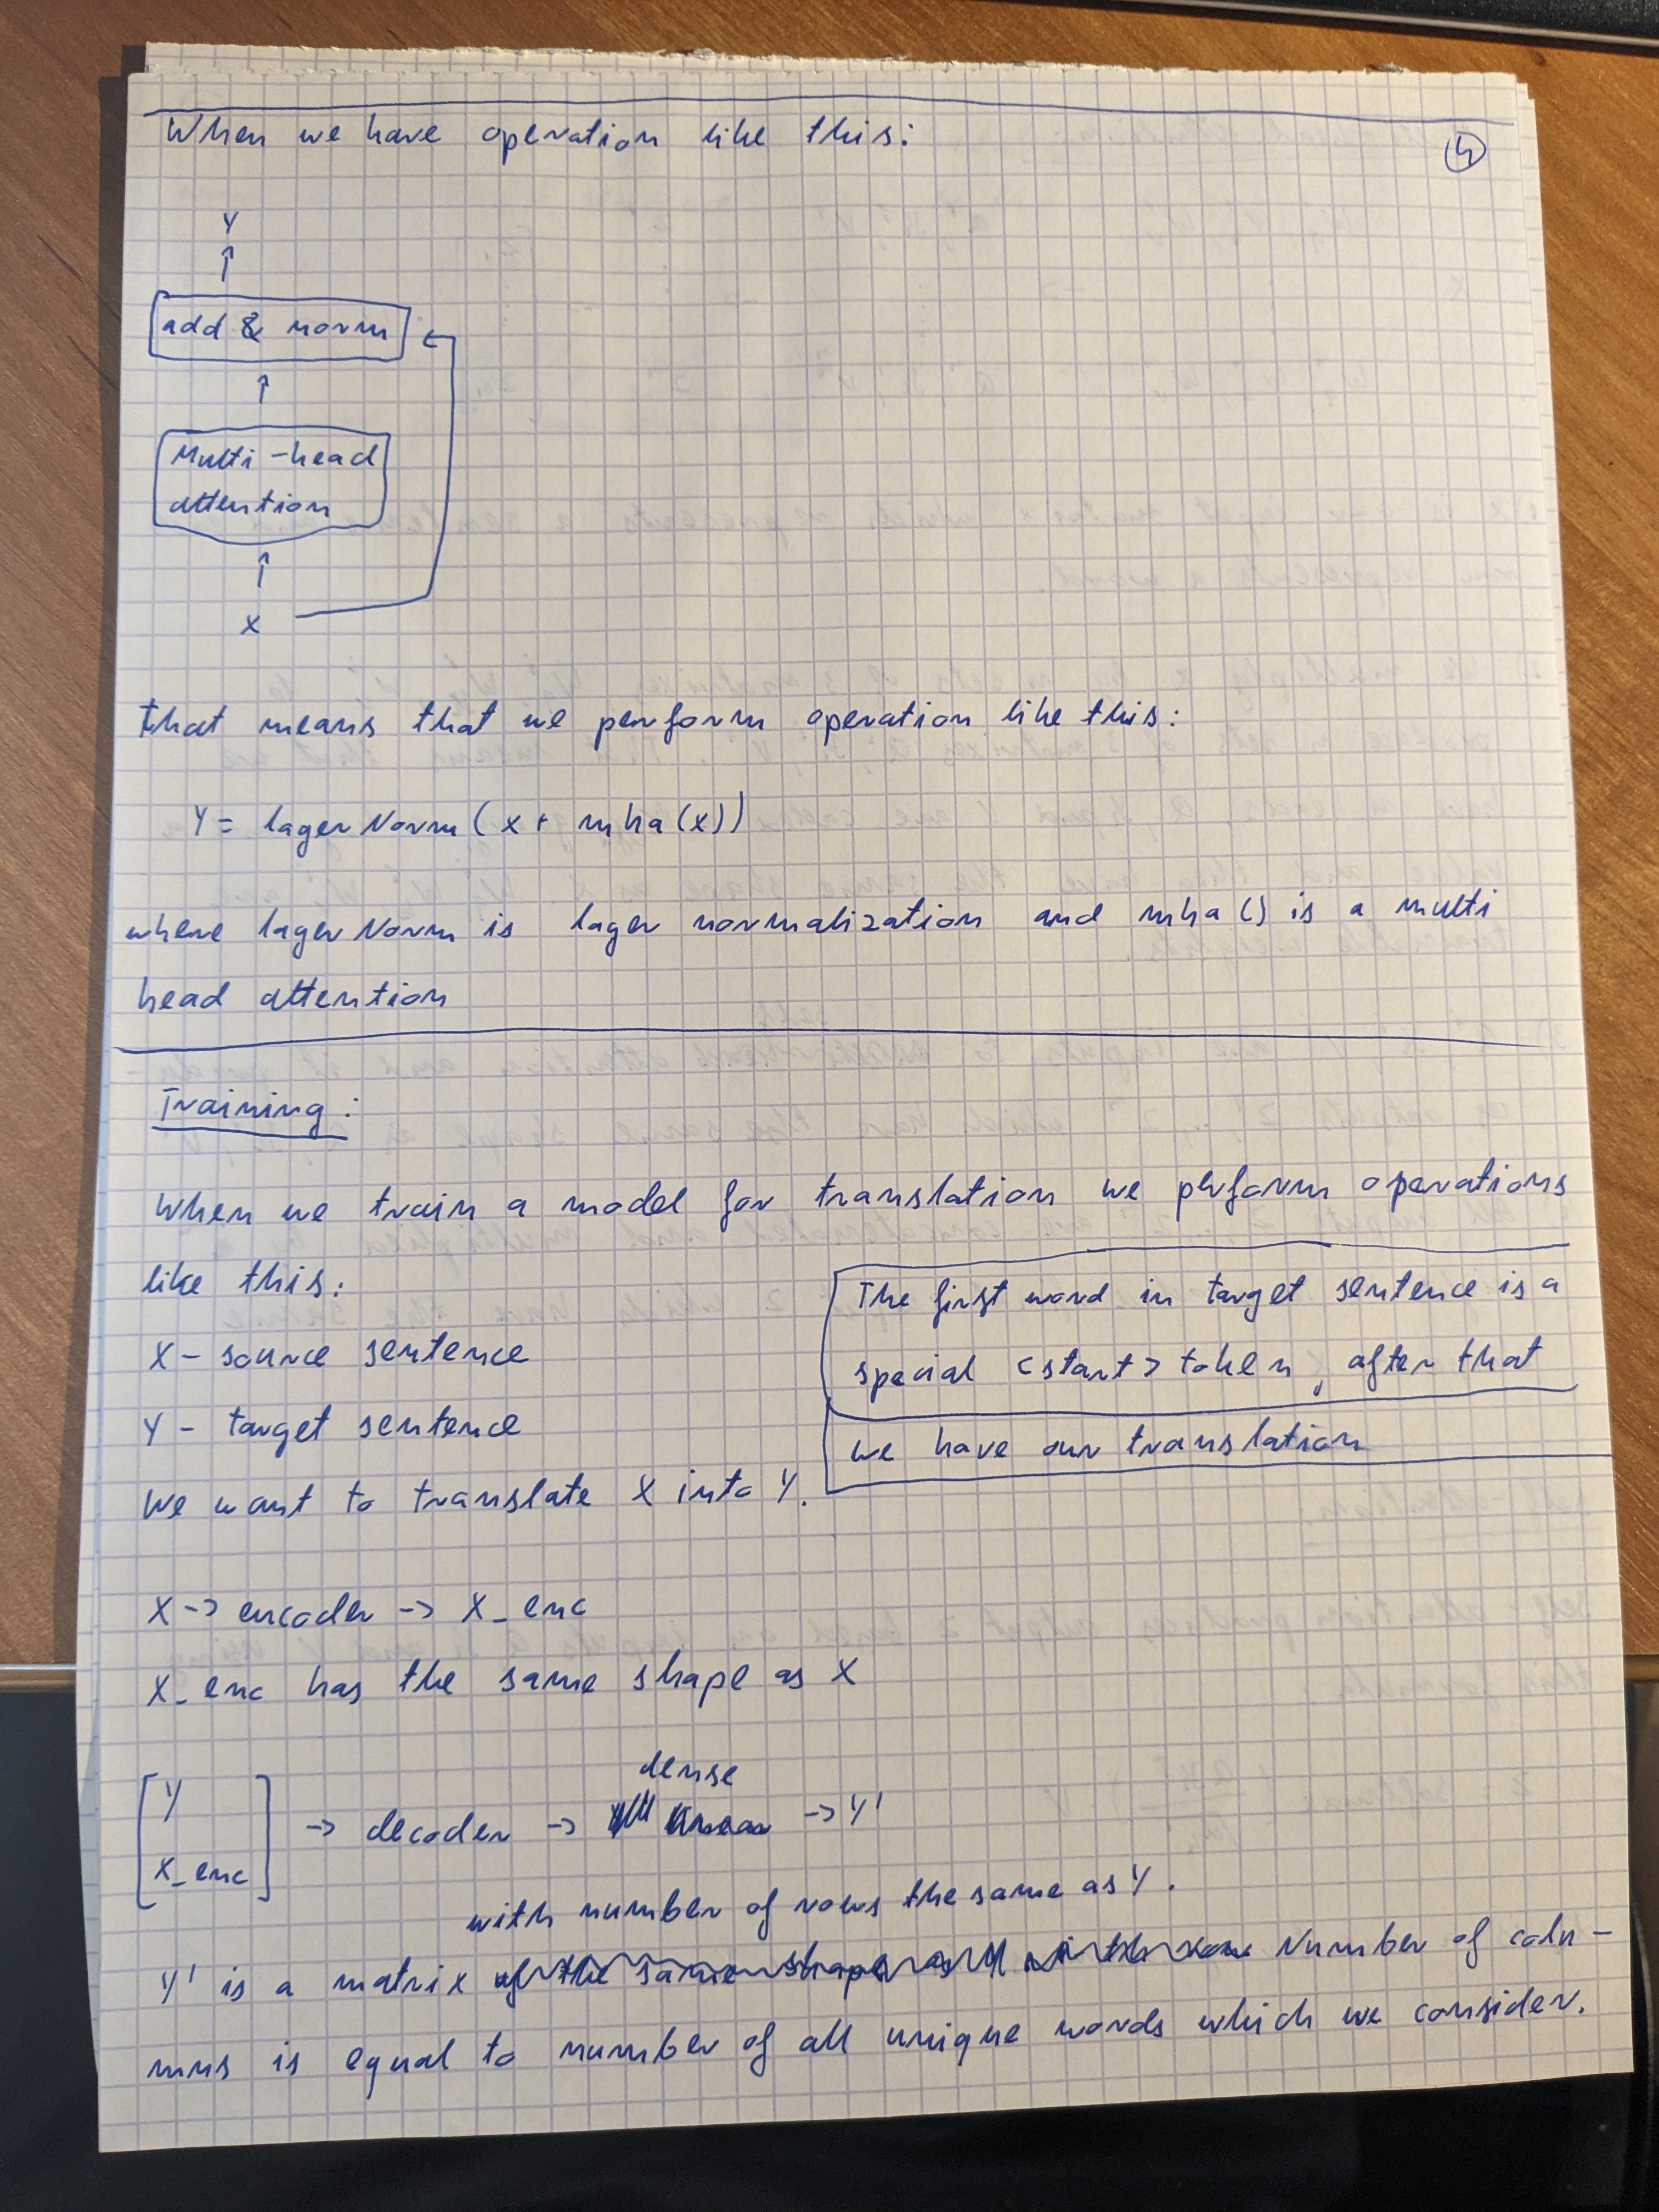 When we have operation like this:
4
Y
add & norm
Multi-head
attention
X
that means that we perform operation like this:
Y = layerNorm(x + mha(x))
where layerNorm is layer normalization and mha() is a multi
head attention
Training:
When we train a model for translation we perform operations
like this:
X - source sentence
Y - target sentence
We want to translate X into Y.
The first word in target sentence is a
special <start> token, after that
we have our translation
X -> encoder -> X_enc
X_enc has the same shape as X
dense
[Y X_enc] -> decoder -> -> Y'
with number of rows the same as Y.
Y' is a matrix Number of colu-
mns is equal to number of all unique words which we consider.